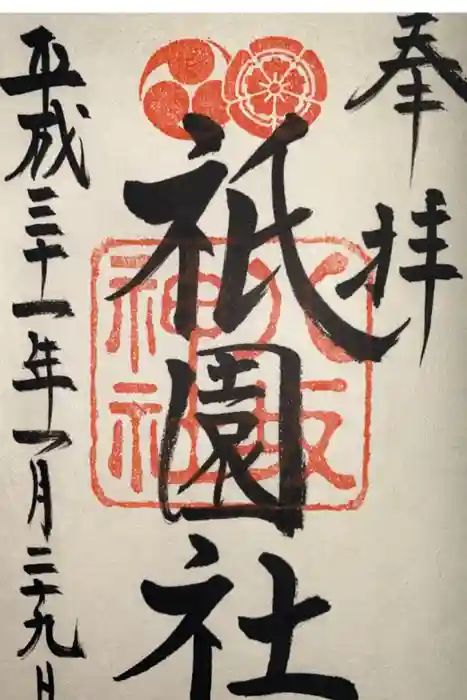 奉拝
祇園社
八坂神社
平成三十一年一月二十九日